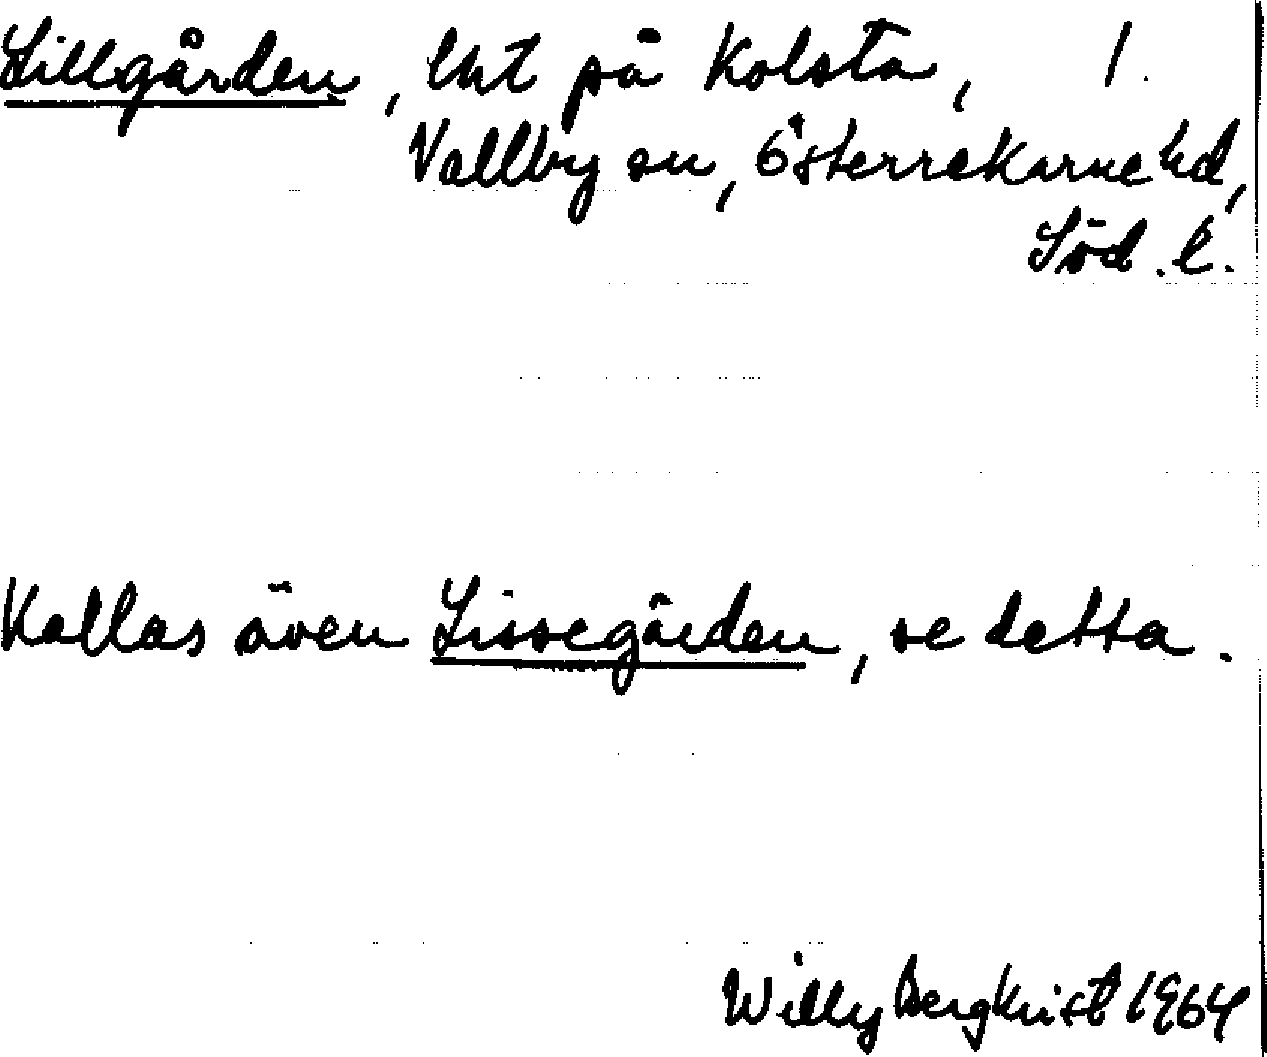 Lillgården, lht på Kolsta, 1.
Vallby sn, Österrekarne hd,
Söd. l.
Kallas även Lissegården, se detta.
Willy Bergkvist 1964